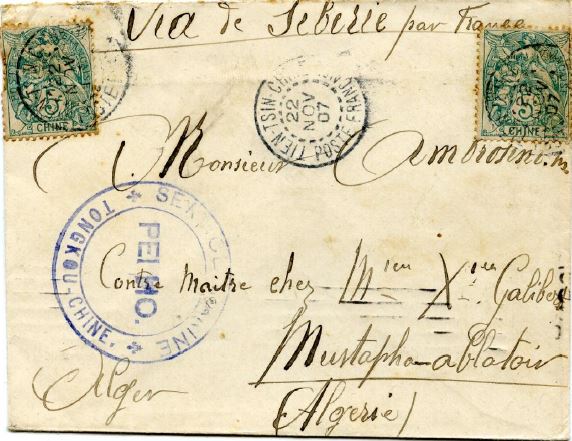 Via de Seberie par France
5
CHINE
TIEN-TSIN CHINE
22
NOV
07
POSTE FRAN
5
CHINE
Monsieur Ambrosini
SERVICE MARINE
PEI HO.
TONGKOU-CHINE.
Contre Maitre chez Mr Xier Galiber
Mustapha-ablatoir
Alger
(Algerie)